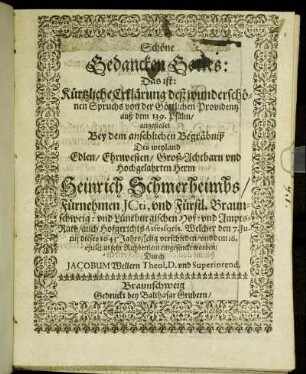 Schöne
Gedancken Gottes:
Das ist:
Kürtzliche Erklärung deß wunderschö-
nen Spruchs von der Göttlichen Providentz
auß dem 139. Psalm/
angestellet
Bey dem ansehlichen Begräbniß
Des weyland
Edlen/ Ehrnvesten/ Groß-Achtbarn und
Hochgelahrten Herrn
Heinrich Schmerheimbs/
Fürnehmen JCti, und Fürstl. Braun-
schweig: und Lüneburgischen Hof- und
Rath/ auch Hofgerichts Assessoris. Welcher den 7. Ju-
nii dieses 1641 Jahrs selig verschieden/ und den 16.
Durch
JACOBUM Wellern Theol. D. und Superintend.
Braunschweig
Gedruckt bey Balthasar Grubern/